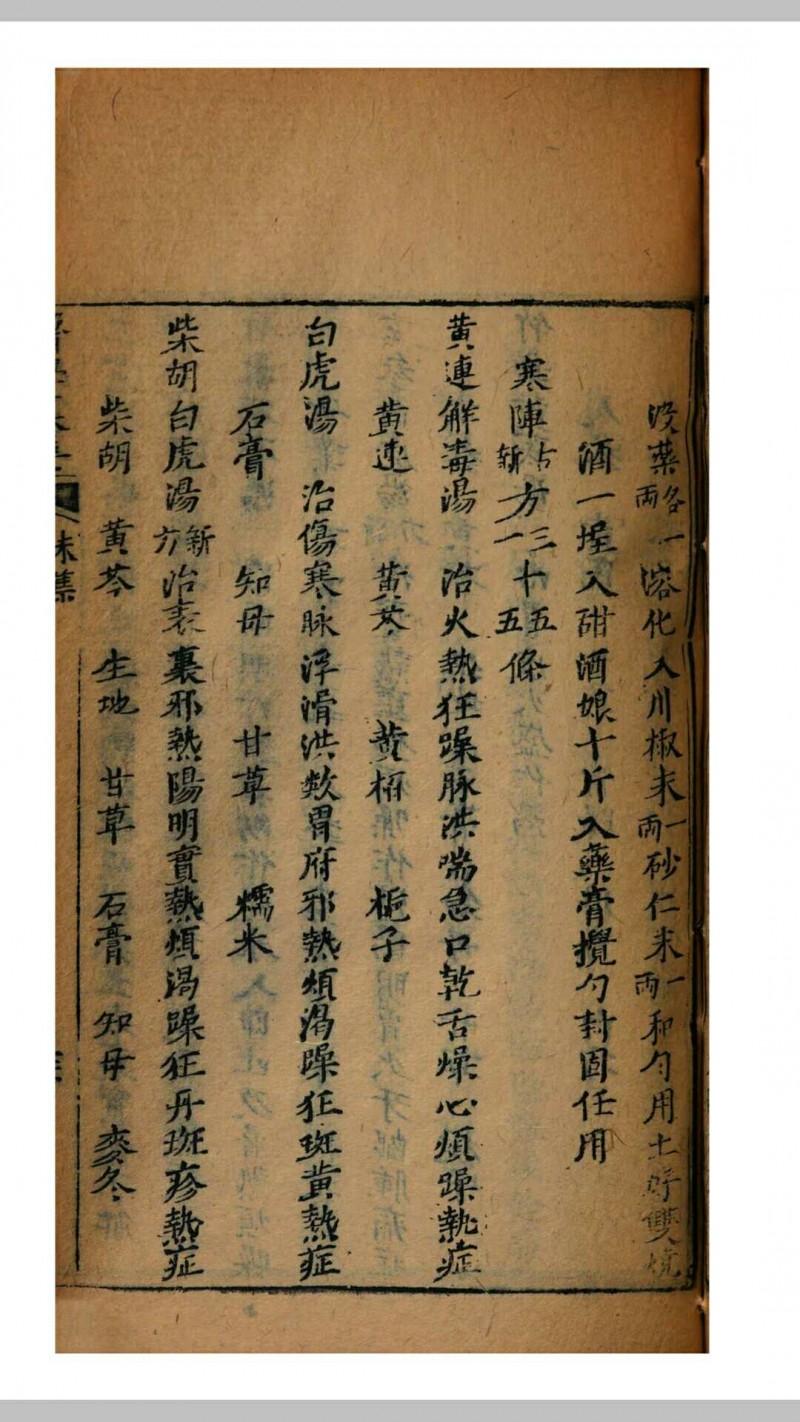 没藥各一兩溶化入川椒末一兩砂仁末一兩和勻用上好雙燒
酒一埕入甜酒娘十斤入藥膏攪勺封固任用
寒陣古方三十五條新方一十五條
黃連解毒湯　治火熱狂躁脉洪喘急口乾舌燥心煩躁執症
黃連　黃芩　黃栢　梔子
白虎湯　治傷寒脉浮滑洪数胃府邪熱煩渴躁狂斑黃熱症
石膏　知母　甘草　糯米
柴胡白虎湯新方治表裏邪熱陽明實熱煩渴躁狂丹斑疹熱症
柴胡　黃芩　生地　甘草　石膏　知母　麥冬